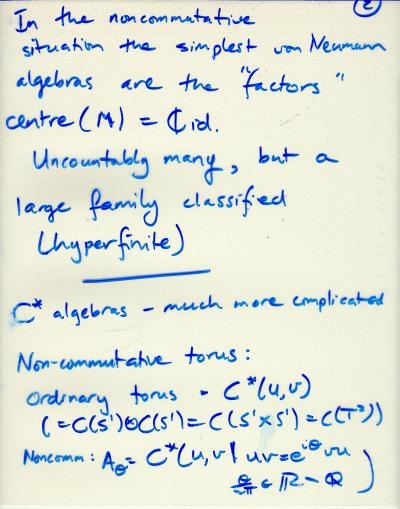 2
In the noncommutative
situation the simplest von Neumann
algebras are the "factors"
centre(M) = ℂid.
Uncountably many, but a
large family classified
(hyperfinite)
C* algebras - much more complicated
Non-commutative torus:
Ordinary torus - C*(u,v)
(=C(S¹)⊗C(S¹)=C(S¹×S¹)=C(T²))
Noncomm: A_θ = C*(u,v | uv=e^{iθ}vu
θ/2π ∈ ℝ - ℚ )